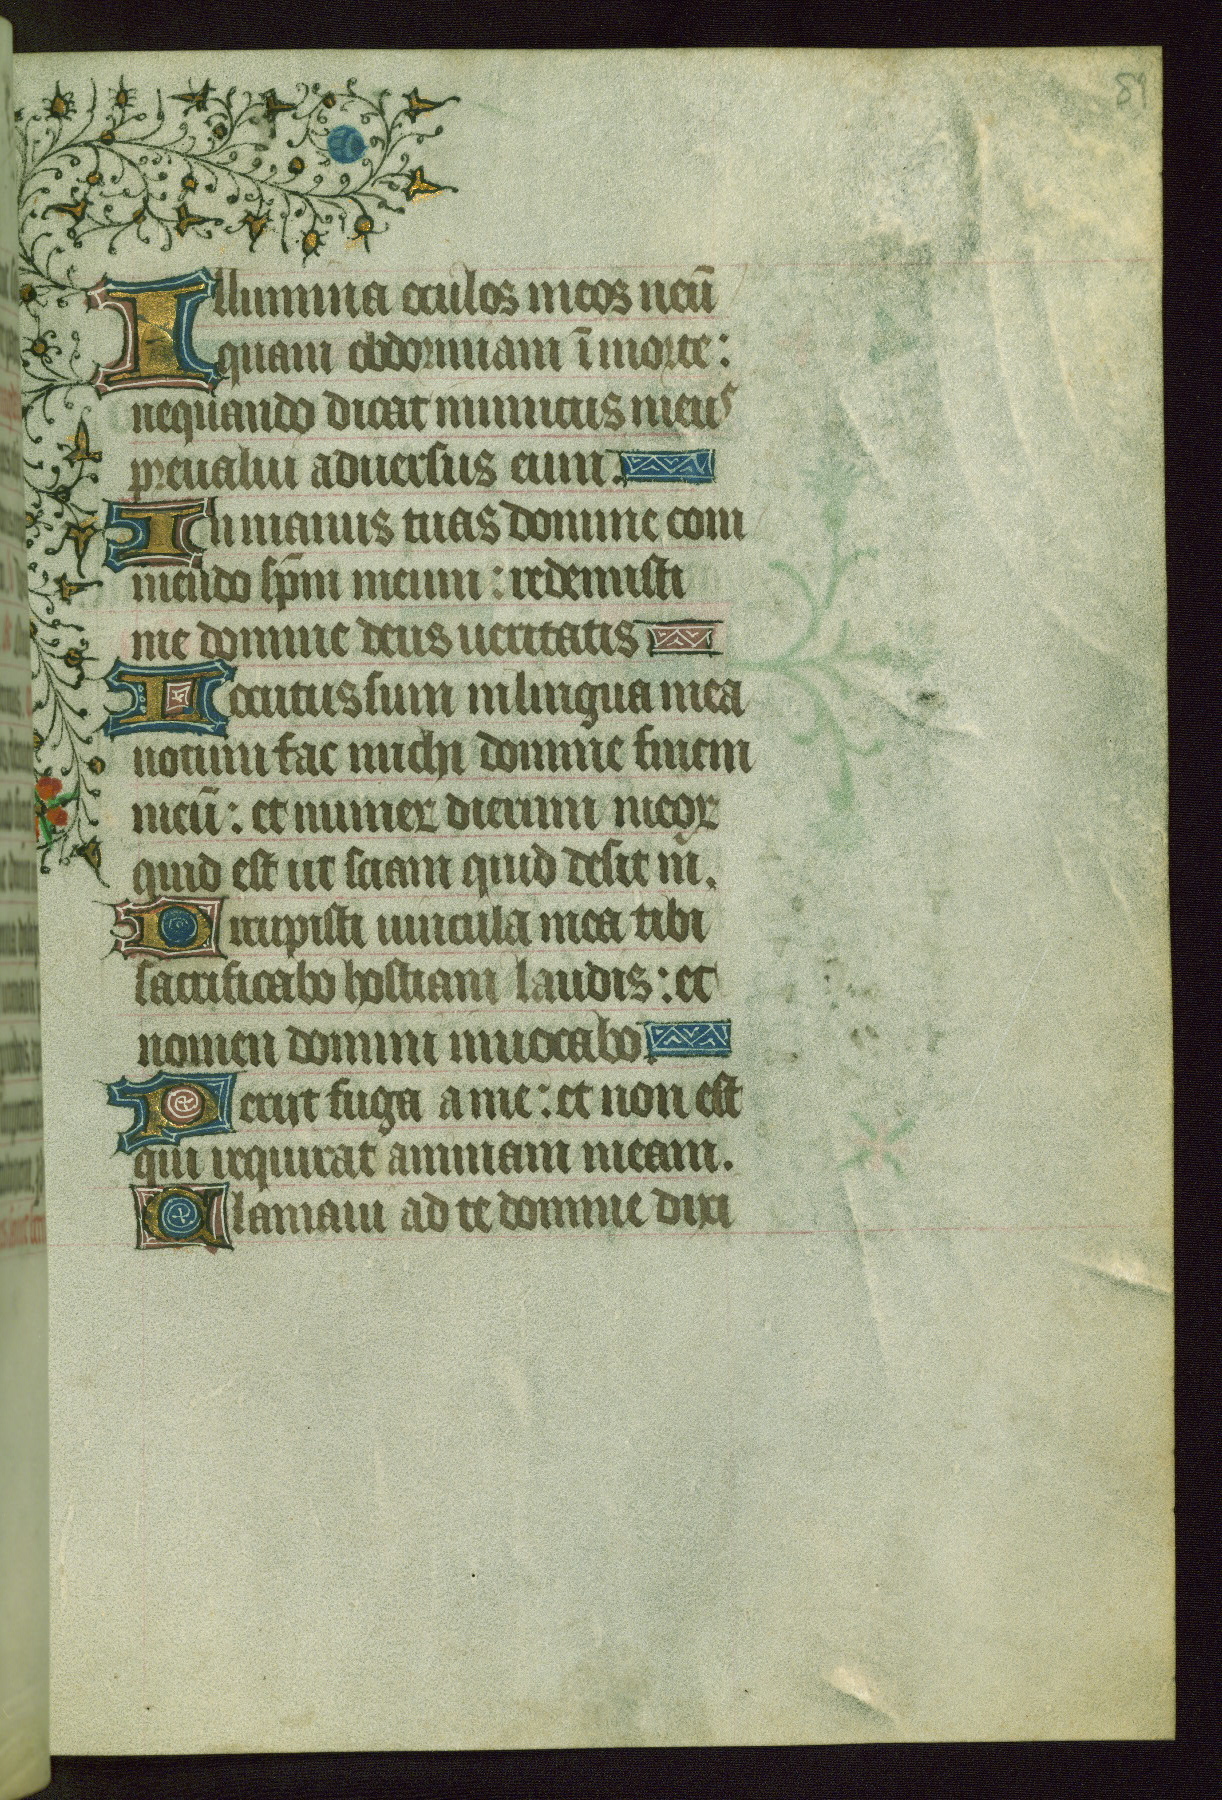 81
Illumina oculos meos neū
quam obdormiam ī morte:
nequando dicat inimicus meus
preualui aduersus eum.
In manus tuas domine com
mendo sp̄m meum: redemisti
me domine deus ueritatis
Locutus sum in lingua mea
notum fac michi domine finem
meū: et numeꝝ dierum meoꝝ
quid est ut sciam quid desit m̄.
Dirupisti uincula mea tibi
sacrificabo hostiam laudis: et
nomen domini inuocabo.
Periit fuga a me: et non est
qui requirat animam meam.
Clamaui ad te domine dixi